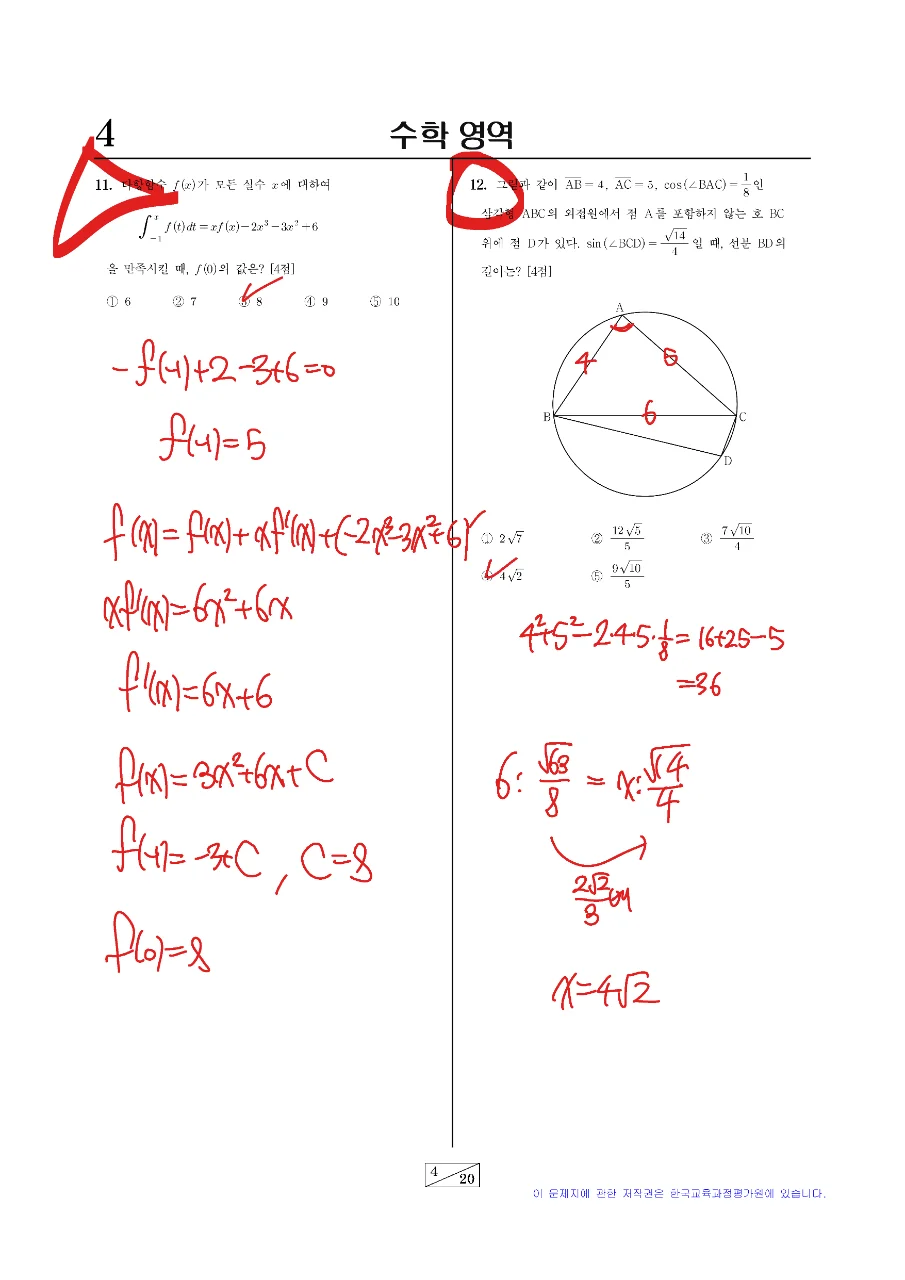 4
수학 영역
11. 다항함수 f(x)가 모든 실수 x에 대하여
∫_{-1}^{x} f(t)dt = xf(x) − 2x³ − 3x² + 6
을 만족시킬 때, f(0)의 값은? [4점]
① 6 ② 7 ③ 8 ④ 9 ⑤ 10
−f(-1)+2−3+6=0
f(-1)=5
f(x)=f(x)+xf'(x)+(−2x³−3x²+6)'
xf'(x)=6x²+6x
f'(x)=6x+6
f(x)=3x²+6x+C
f(-1)=−3+C, C=8
f(0)=8
12. 그림과 같이 AB=4, AC=5, cos(∠BAC)=1/8인
삼각형 ABC의 외접원에서 점 A를 포함하지 않는 호 BC
위에 점 D가 있다. sin(∠BCD)=√14/4일 때, 선분 BD의
길이는? [4점]
A
4 5
B 6 C
D
① 2√7 ② 12√5/5 ③ 7√10/4
④ 4√2 ⑤ 9√10/5
4²+5²−2·4·5·1/8=16+25−5
=36
6:√63/8=x:√14/4
2√2/3
x=4√2
4/20
이 문제지에 관한 저작권은 한국교육과정평가원에 있습니다.